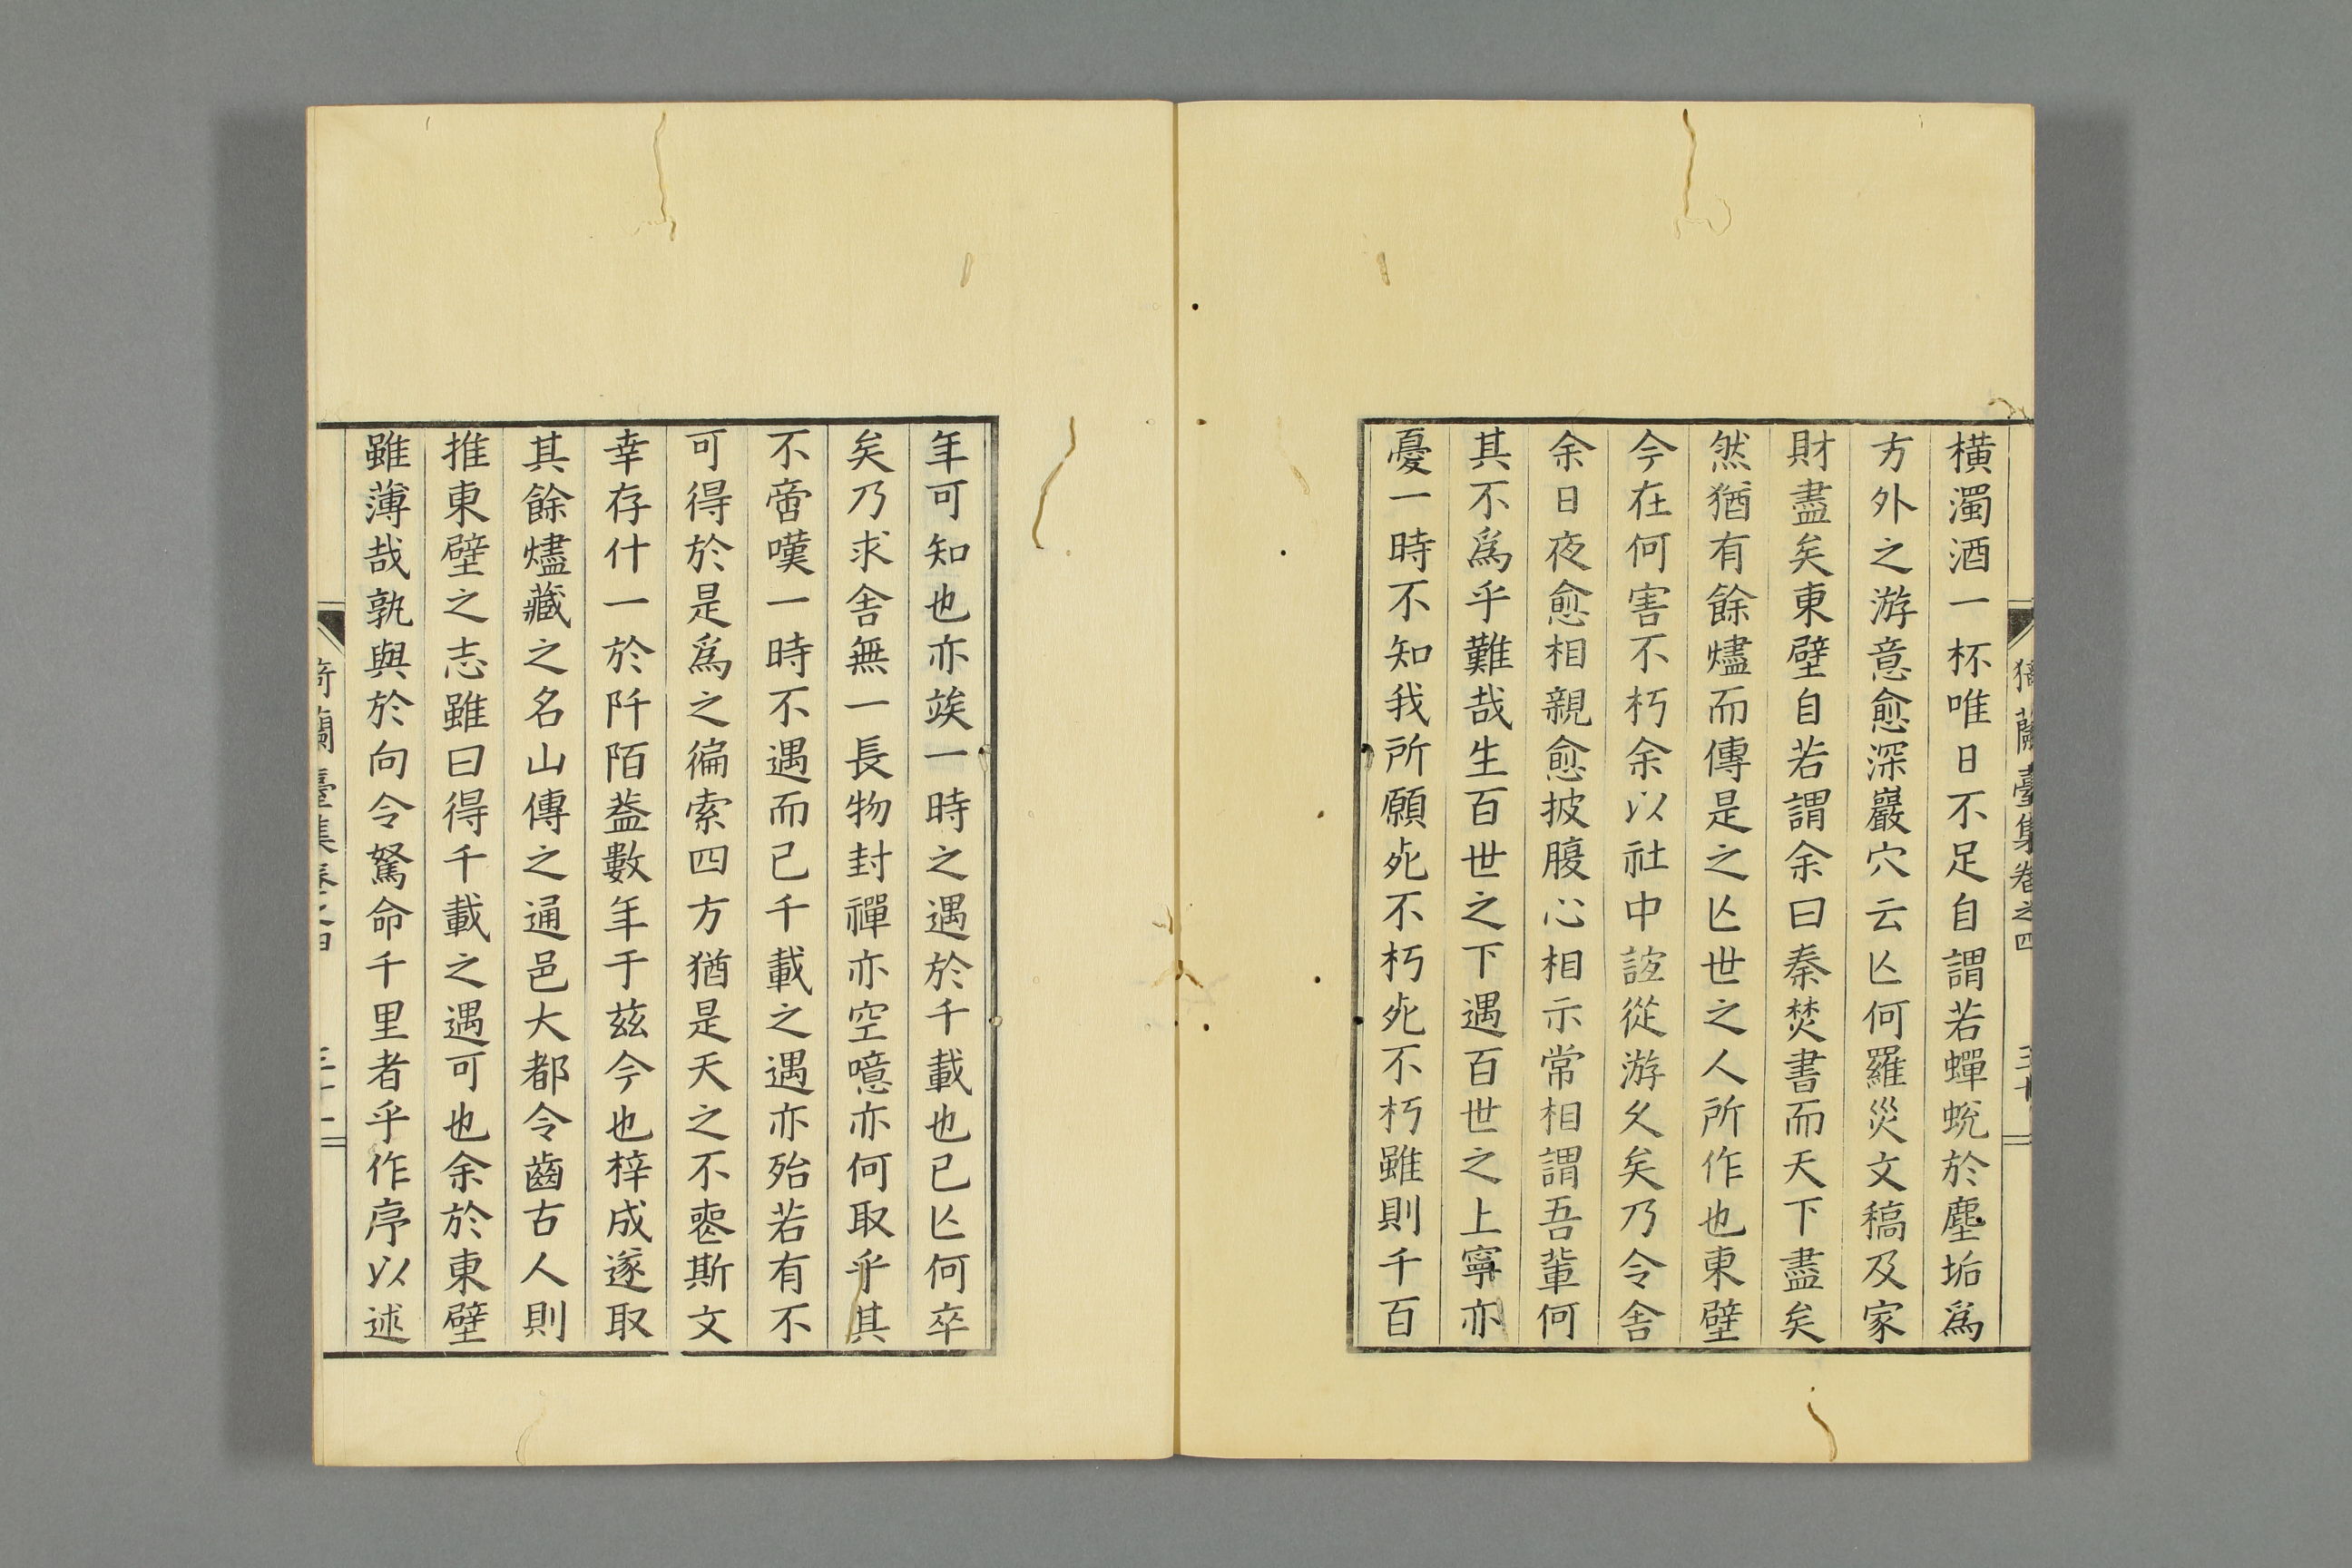 猗蘭臺集卷之四
三十
橫濁酒一杯唯日不足自謂若蟬蛻於塵垢爲
方外之游意愈深巖穴云亾何羅災文稿及家
財盡矣東壁自若謂余曰秦焚書而天下盡矣
然猶有餘燼而傳是之亾世之人所作也東壁
今在何害不朽余以社中誼從游久矣乃令舍
余日夜愈相親愈披腹心相示常相謂吾輩何
其不爲乎難哉生百世之下遇百世之上寧亦
憂一時不知我所願死不朽死不朽雖則千百
年可知也亦竢一時之遇於千載也已亾何卒
矣乃求舍無一長物封禪亦空噫亦何取乎其
不啻嘆一時不遇而已千載之遇亦殆若有不
可得於是爲之徧索四方猶是天之不喪斯文
幸存什一於阡陌葢數年于茲今也梓成遂取
其餘燼藏之名山傳之通邑大都令齒古人則
推東壁之志雖曰得千載之遇可也余於東壁
雖薄哉孰與於向令駕命千里者乎作序以述
猗蘭臺集卷之四
三十一